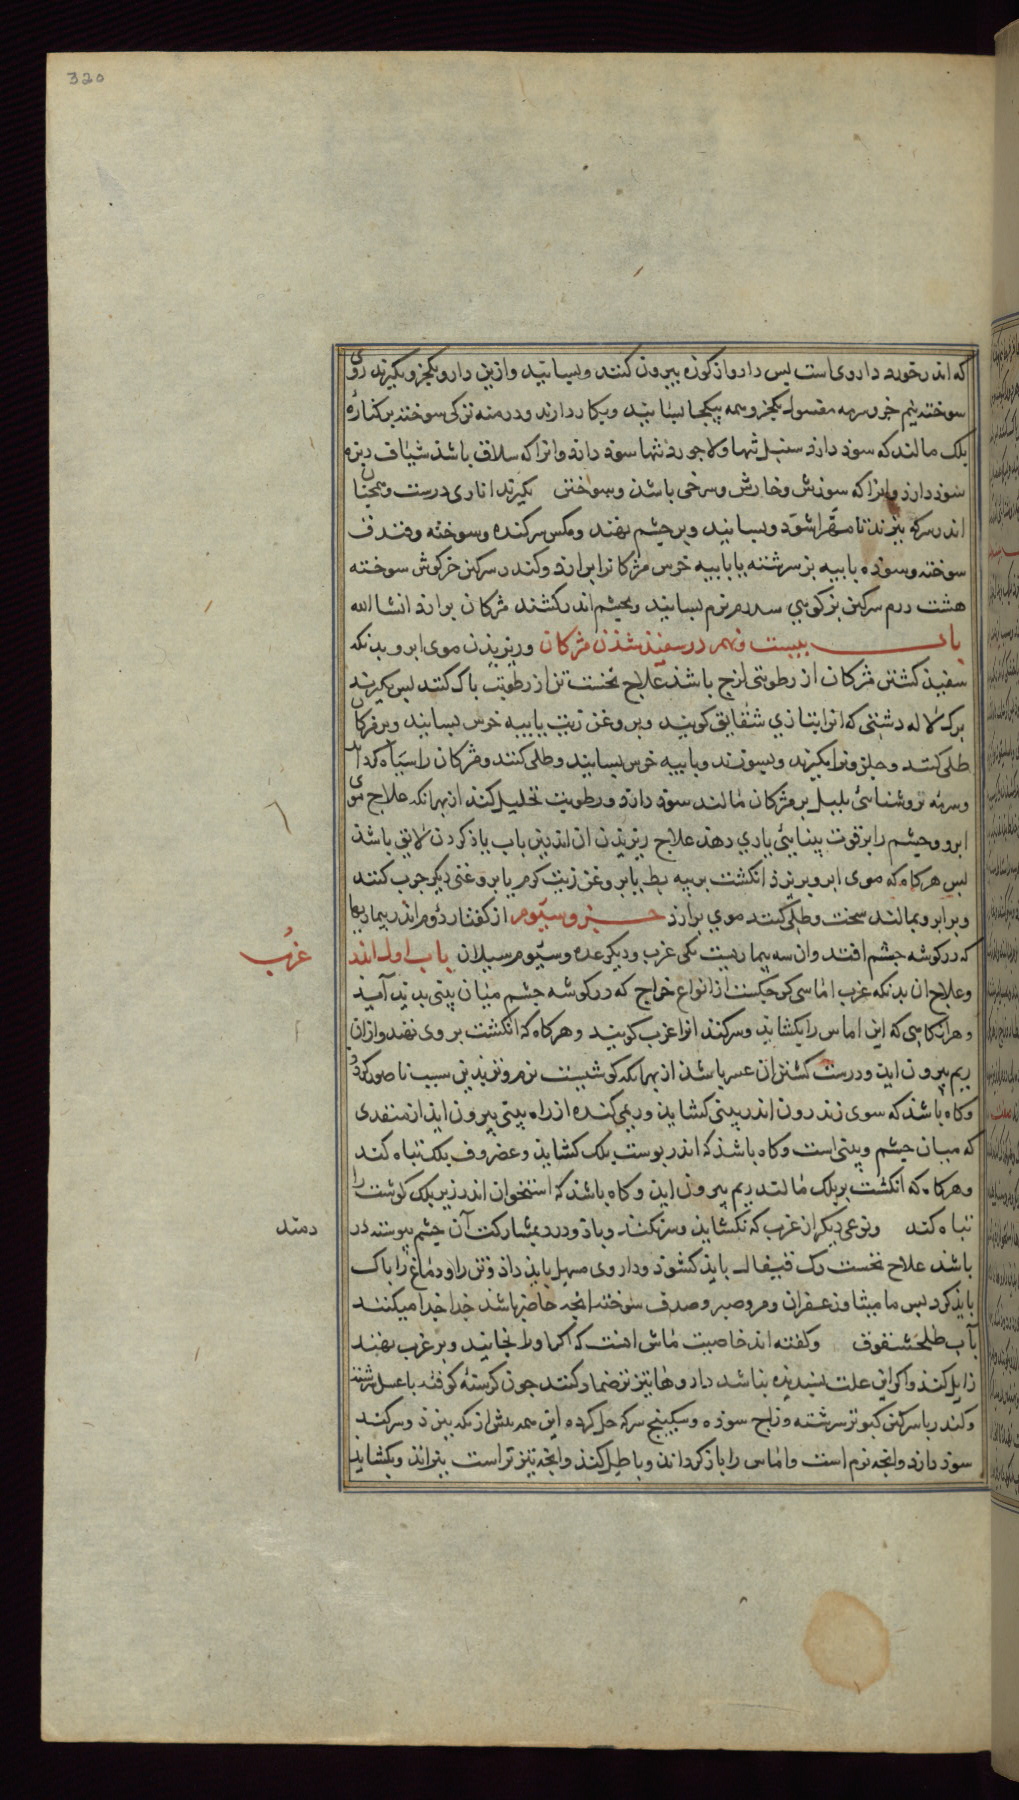 320
که اندر خورد داروی است پس دارو از کوزه بیرون کنند و بسایند و ازین دارو یکجزو بکیرند روی
سوخته نیم جزو سرمه مغسول یکجزو همه بیکجا بسایند و بکار دارند و درمنه ترکی سوخته بر کناره
پلک مالند که سوذ دارذ سنبل تنها و لاجورد تنها سوذ دارذ و انرا که سلاق باشذ شیاف
سوذ دارذ و انرا که سوزش و خارش و سرخی باشذ و سوختن بکیرند اناری درست و همجنان
اندر سرکه بپزند تا مهرا شوذ و بسایند و بر جشم نهند و مکس سر کنده و سوخته و فندق
سوخته و سوذه با پیه بز سرشته یا با پیه خرس مژکانرا برارذ و کندر سرکین خرکوش سوخته
هشت درم سرکین بز کوهی سه درم نرم بسایند و بجشم اندر کشند مژکان برارذ انشا الله
باب بیست و نهم در سفیذ شذن مژکان و ریزیذن موی ابرو بدنکه
سفیذ کشتن مژکان از رطوبتی لزج باشذ علاج نخست تن از رطوبت باک کنند بس بکیرند
برک لاله دشتی که انرا بتازی شقایق کویند و بروغن زیت یا بپیه خرس بسایند و بر مژکان
طلی کنند و حلزون را بکیرند و بسوزند و با پیه خرس بسایند و طلی کنند و مژکان را سیاه کرداند
و سرمه روشنایی بلبل بر مژکان مالند سوذ دارذ و رطوبت تحلیل کند از بهرانکه علاج موی
ابرو و جشم را بر قوت بینایی یاری دهذ علاج ریزیذن ان اندرین باب یاذ کردن لایق باشذ
بس هر کاه که موی ابرو بریزذ انکشت بر پیه بط یا بروغن زیت کرم یا بروغنی دیکر جرب کنند
و بر ابرو بمالند سخت و طلی کنند موی برارذ جزو سیوم از کفتار دوم اندر بیماریها
که در کوشه جشم افتد و ان سه بیماریست یکی غرب و دیکر غده و سیوم سیلان باب اول اندر
غرب
و علاج ان بدنکه غرب اماسی کوجکست از انواع خراج که در کوشه جشم میان بینی بدید آید
و هرانکاهی که این اماس را بکشاید و سر کند انرا غرب کویند و هر کاه که انکشت بر وی نهند از ان
ریم بیرون ایذ و درست کشتن ان عسر باشذ از بهرانکه کوشیست نرم و تر بدین سبب ناصور کردد
و کاه باشذ که سوی زندرون اندر بینی کشاید و ریمی کنده از راه بینی بیرون ایذ از منفذی
که میان جشم و بینی است و کاه باشذ که اندر بوست پلک کشاید و غضروف پلک تباه کند
و هر کاه که انکشت بر پلک مالند ریم بیرون ایذ و کاه باشد که استخوان اندر زیر پلک کوشت را
تباه کند و نوعی دیکر از غرب که نکشاید و سر نکند و باذ و درد بمشارکت آن جشم پیوسته در
دمند
باشذ علاج نخست رک قیفال بایذ کشوذ و داروی مسهل بایذ داذ و تن را و دماغ را باک
بایذ کرد بس مامیثا و زعفران و مر و صبر و صدف سوخته انجه حاضر باشذ جدا جدا میکنند
بآب طلحشقوق و کفته اند خاصیت ماش انست که اکر او را بخایند و بر غرب نهند
زایل کنذ و اکر این علت بسنده نباشد داروها تیزتر ضماد کنند جون کرسنه کوفته با عسل سرشته
و کندر با سرکین کبوتر سرشته و زاج سوذه و سکبینج سرکه حل کرده این همه بیش ازنکه بپزذ و سر کند
سوذ دارذ و انجه نرم است و اماس را باز کرداند و باطل کنذ و انجه تیزتر است بپزاند و بکشاید